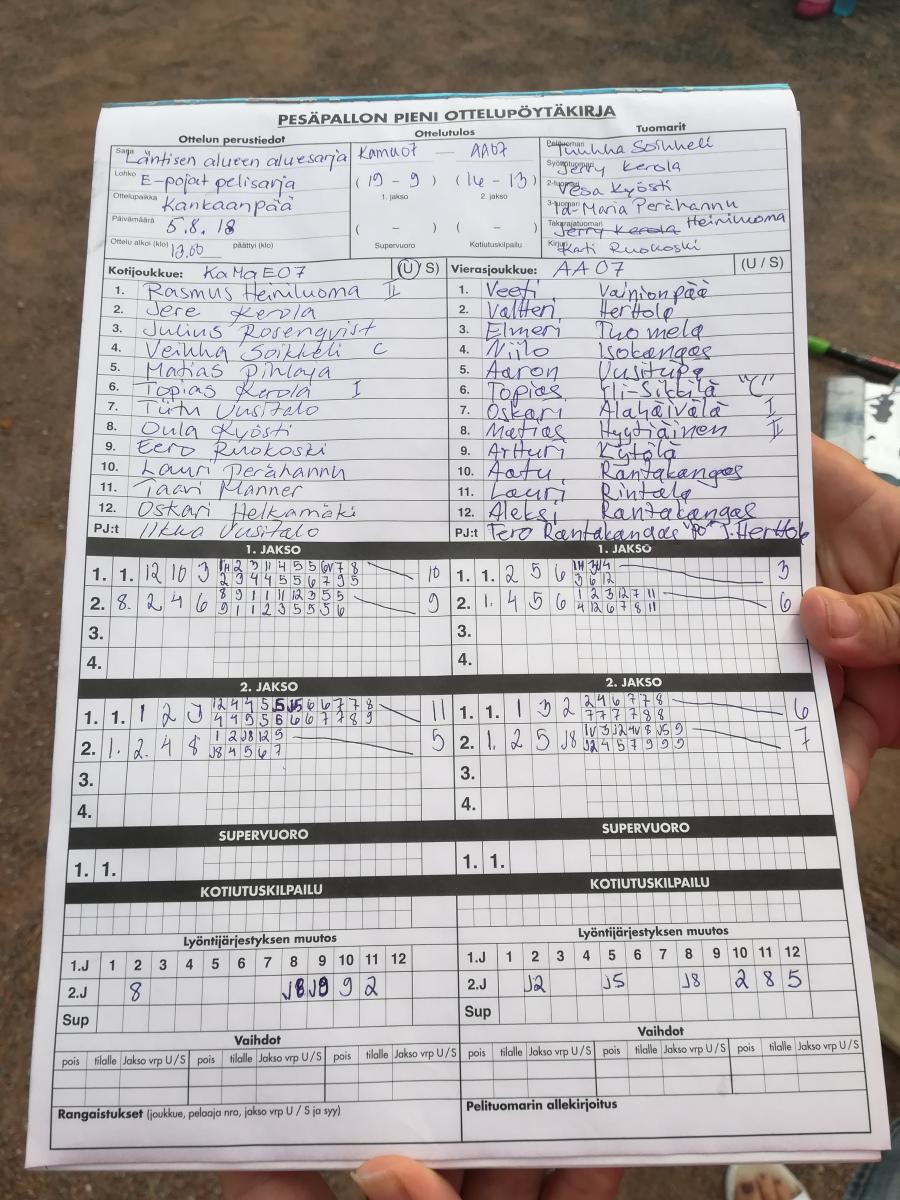 PESÄPALLON PIENI OTTELUPÖYTÄKIRJA
Ottelun perustiedot
Sarja Läntisen alueen aluesarja
Lohko E-pojat pelisarja
Ottelupaikka Kankaanpää
Päivämäärä 5.8.18
Ottelu alkoi (klo) 12.00 päättyi (klo)
Ottelutulos
KaMa07 — AA07
(19 - 9) (14 - 13)
1. jakso 2. jakso
( - ) ( - )
Supervuoro Kotiutuskilpailu
Tuomarit
Pelituomari Tuukka Soikkeli
Syöttötuomari Jerry Kerola
2-tuomari Vesa Kyösti
3-tuomari Ia-Maria Perähannu
Takarajatuomari Jerry Kerola Heiniluoma
Kirjuri Kati Ruokoski
Kotijoukkue: KaMaE07 (U/ S)
1. Rasmus Heiniluoma II
2. Jere Kerola
3. Julius Rosenqvist
4. Veikka Soikkeli C
5. Matias Pihlaja
6. Topias Kerola I
7. Tiitu Uusitalo
8. Oula Kyösti
9. Eero Ruokoski
10. Lauri Perähannu
11. Taavi Manner
12. Oskari Helkamäki
PJ:t Ilkka Uusitalo
Vierasjoukkue: AA07 (U / S)
1. Veeti Vainionpää
2. Valtteri Herttola
3. Elmeri Tuomela
4. Niilo Isokangas
5. Aaron Uusitupa
6. Topias Yli-Sikkilä "C"
7. Oskari Alahäivälä I
8. Matias Hyytiäinen II
9. Artturi Kytölä
10. Aatu Rantakangas
11. Lauri Rintala
12. Aleksi Rantakangas
PJ:t Tero Rantakangas "PJ" J. Herttola
1. JAKSO
1. 1. 12 10 3 10
2. 8. 2 4 6 9
3.
4.
1. JAKSO
1. 1. 2 5 6 3
2. 1. 4 5 6 6
3.
4.
2. JAKSO
1. 1. 1 2 3 11
2. 1. 2. 4 8 5
3.
4.
2. JAKSO
1. 1. 1 3 2 6
2. 1. 2 5 J8 7
3.
4.
SUPERVUORO
1. 1.
SUPERVUORO
1. 1.
KOTIUTUSKILPAILU
KOTIUTUSKILPAILU
Lyöntijärjestyksen muutos
1.J 1 2 3 4 5 6 7 8 9 10 11 12
2.J 8 J8 J9 9 2
Sup
Lyöntijärjestyksen muutos
1.J 1 2 3 4 5 6 7 8 9 10 11 12
2.J J2 J5 J8 2 8 5
Sup
Vaihdot
pois tilalle Jakso vrp U / S pois tilalle Jakso vrp U / S pois tilalle Jakso vrp U / S
Vaihdot
pois tilalle Jakso vrp U / S pois tilalle Jakso vrp U / S pois tilalle Jakso vrp U / S
Rangaistukset (joukkue, pelaaja nro, jakso vrp U / S ja syy)
Pelituomarin allekirjoitus